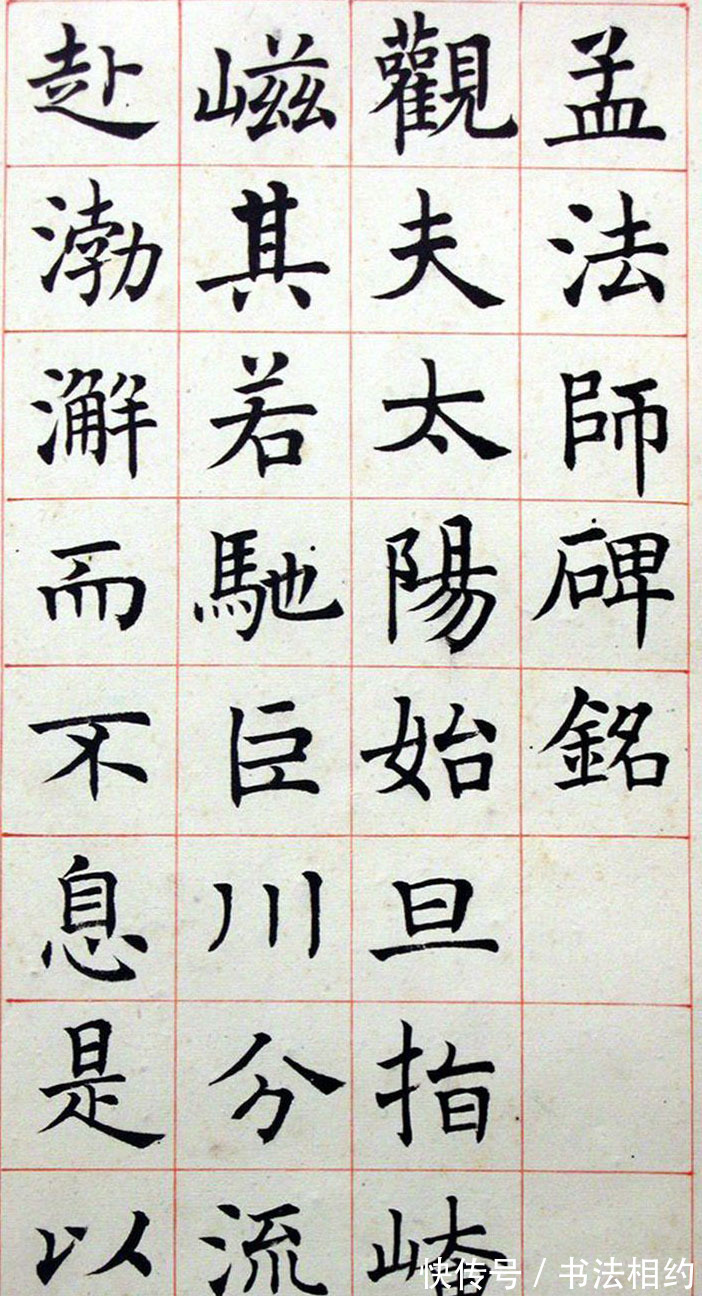 孟法師碑銘
觀夫太陽始旦指崦
嵫其若馳巨川分流
赴渤澥而不息是以
快传号 / 书法相约